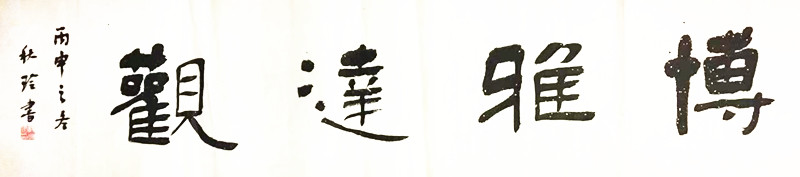 博雅達觀
丙申之冬
秋玲書